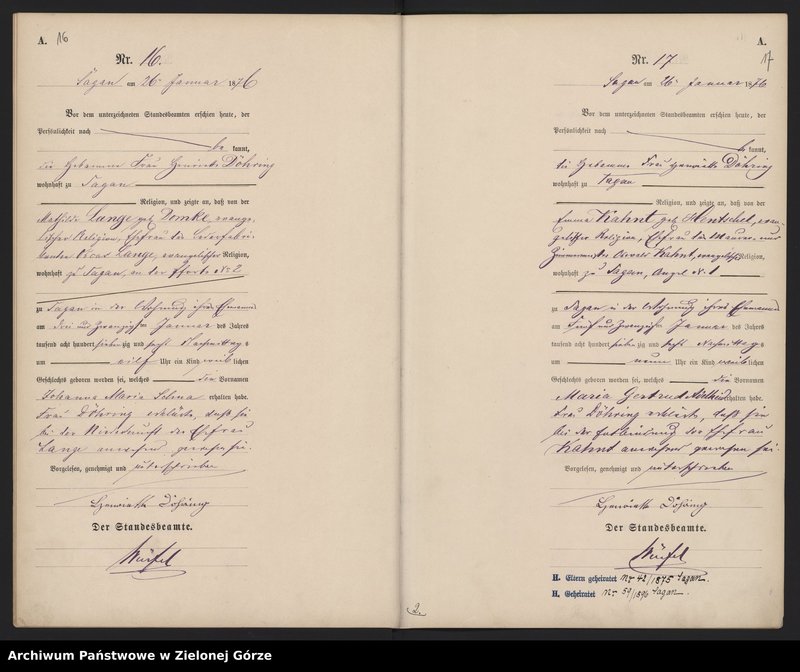 A. 16
Nr. 16.
Sagan am 26. Januar 1876
Vor dem unterzeichneten Standesbeamten erschien heute, der
Persönlichkeit nach
be kannt,
die Hebamme Frau Henriette Döhring
wohnhaft zu Sagan
Religion, und zeigte an, daß von der
Mathilde Lange geb. Domke, evange-
lischer Religion, Ehefrau des Lederfabri-
kanten Oscar Lange, evangelischer Religion,
wohnhaft zu Sagan, an der Pforte No 2
zu Sagan in der Wohnung ihres Ehemannes
am drei und zwanzigsten Januar des Jahres
tausend acht hundert siebenzig und sechs Nachmittags
um elf Uhr ein Kind weiblichen
Geschlechts geboren worden sei, welches die Vornamen
Johanna Maria Selma erhalten habe.
Frau Döhring erklärte, daß sie
bei der Niederkunft der Ehefrau
Lange zugegen gewesen sei.
Vorgelesen, genehmigt und unterschrieben
Henriette Döhring
Der Standesbeamte.
A.
17
Nr. 17
Sagan am 26. Januar 1876
Vor dem unterzeichneten Standesbeamten erschien heute, der
Persönlichkeit nach
be kannt,
die Hebamme Frau Henriette Döhring
wohnhaft zu Sagan
Religion, und zeigte an, daß von der
Emma Kahnt geb. Hentschel, evan-
gelischer Religion, Ehefrau des Maurer- und
Zimmermeisters Oswald Kahnt, evangelischer Religion,
wohnhaft zu Sagan, Angel No 1
zu Sagan in der Wohnung ihres Ehemannes
am fünf und zwanzigsten Januar des Jahres
tausend acht hundert siebenzig und sechs Nachmittags
um neun Uhr ein Kind weiblichen
Geschlechts geboren worden sei, welches die Vornamen
Maria Gertrud erhalten habe.
Frau Döhring erklärte, daß sie
bei der Entbindung der Ehefrau
Kahnt anwesend gewesen sei.
Vorgelesen, genehmigt und unterschrieben
Henriette Döhring
Der Standesbeamte.
H. Eltern geheiratet Nr 42/1875 Sagan.
H. Geheiratet Nr 59/1896 Sagan
2.
Archiwum Państwowe w Zielonej Górze